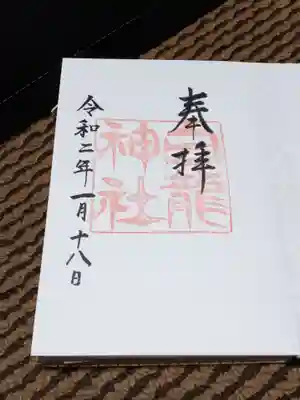 奉拝
龍
神社
令和二年一月十八日